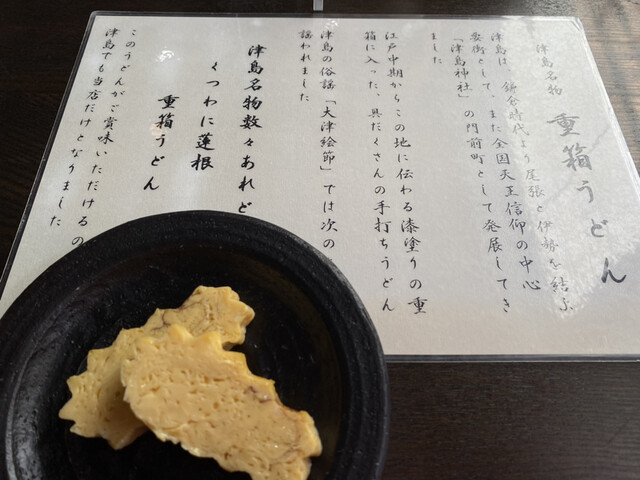 津島名物 重箱うどん
津島は、鎌倉時代より尾張と伊勢を結ぶ
要衝として、また全国天王信仰の中心
「津島神社」の門前町として発展してき
ました
江戸中期からこの地に伝わる漆塗りの重
箱に入った、具だくさんの手打ちうどん
津島の俗謡「大津絵節」では次の
謡われました
津島名物数々あれど
くつわに蓮根
重箱うどん
このうどんがご賞味いただけるの
津島でも当店だけとなりました